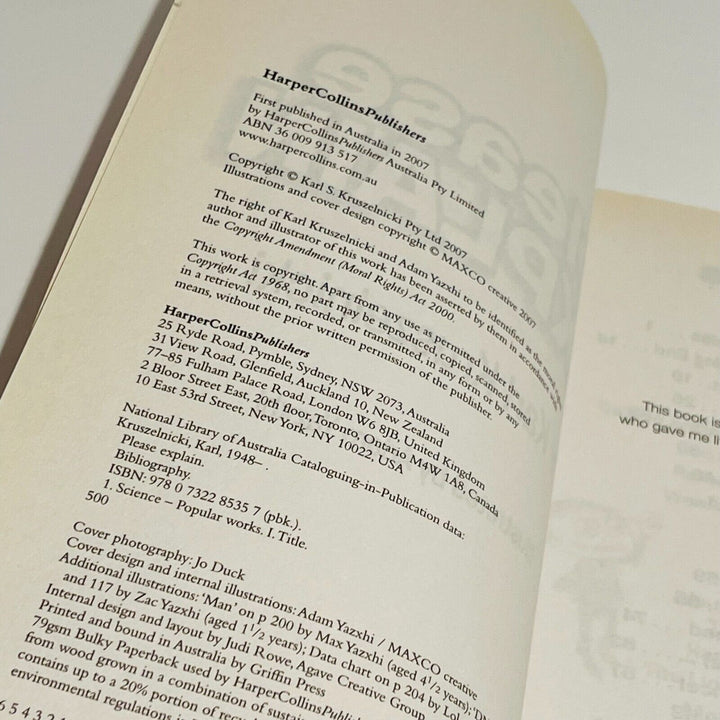 HarperCollinsPublishers
First published in Australia in 2007
by HarperCollinsPublishers Australia Pty Limited
ABN 36 009 913 517
www.harpercollins.com.au
Copyright © Karl S. Kruszelnicki Pty Ltd 2007
Illustrations and cover design copyright © MAXCO creative 2007
The right of Karl Kruszelnicki and Adam Yazxhi to be identified as the moral rights
author and illustrator of this work has been asserted by them in accordance with
the Copyright Amendment (Moral Rights) Act 2000.
This work is copyright. Apart from any use as permitted under the
Copyright Act 1968, no part may be reproduced, copied, scanned, stored
in a retrieval system, recorded, or transmitted, in any form or by any
means, without the prior written permission of the publisher.
HarperCollinsPublishers
25 Ryde Road, Pymble, Sydney, NSW 2073, Australia
31 View Road, Glenfield, Auckland 10, New Zealand
77–85 Fulham Palace Road, London W6 8JB, United Kingdom
2 Bloor Street East, 20th floor, Toronto, Ontario M4W 1A8, Canada
10 East 53rd Street, New York, NY 10022, USA
National Library of Australia Cataloguing-in-Publication data:
Kruszelnicki, Karl, 1948– .
Please explain.
Bibliography.
ISBN: 978 0 7322 8535 7 (pbk.).
1. Science – Popular works. I. Title.
500
Cover photography: Jo Duck
Cover design and internal illustrations: Adam Yazxhi / MAXCO creative
Additional illustrations: 'Man' on p 200 by Max Yazxhi (aged 4 1/2 years);
and 117 by Zac Yazxhi (aged 1 1/2 years); Data chart on p 204 by Lol
Internal design and layout by Judi Rowe, Agave Creative Group
Printed and bound in Australia by Griffin Press
79gsm Bulky Paperback used by HarperCollinsPublis
from wood grown in a combination of sustai
contains up to a 20% portion of recy
environmental regulations i
6 5 4 3 2
This book is
who gave me li